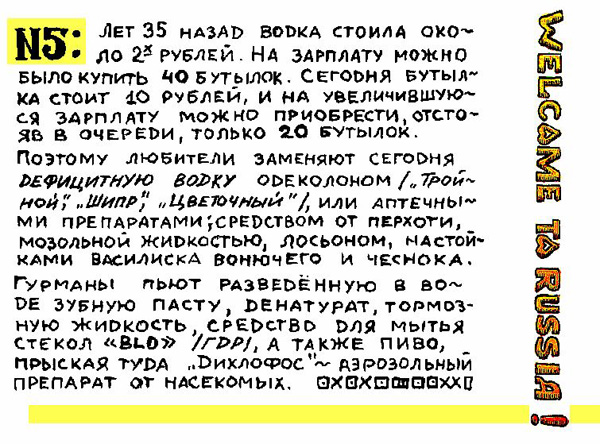 N5: ЛЕТ 35 НАЗАД ВОДКА СТОИЛА ОКО~
ЛО 2ˣ РУБЛЕЙ. НА ЗАРПЛАТУ МОЖНО
БЫЛО КУПИТЬ 40 БУТЫЛОК. СЕГОДНЯ БУТЫЛ~
КА СТОИТ 10 РУБЛЕЙ, И НА УВЕЛИЧИВШУЮ~
СЯ ЗАРПЛАТУ МОЖНО ПРИОБРЕСТИ, ОТСТО~
ЯВ В ОЧЕРЕДИ, ТОЛЬКО 20 БУТЫЛОК.
ПОЭТОМУ ЛЮБИТЕЛИ ЗАМЕНЯЮТ СЕГОДНЯ
ДЕФИЦИТНУЮ ВОДКУ ОДЕКОЛОНОМ /„ТРОЙ~
НОЙ", „ШИПР", „ЦВЕТОЧНЫЙ"/, ИЛИ АПТЕЧНЫ~
МИ ПРЕПАРАТАМИ; СРЕДСТВОМ ОТ ПЕРХОТИ,
МОЗОЛЬНОЙ ЖИДКОСТЬЮ, ЛОСЬОНОМ, НАСТОЙ~
КАМИ ВАСИЛИСКА ВОНЮЧЕГО И ЧЕСНОКА.
ГУРМАНЫ ПЬЮТ РАЗВЕДЁННУЮ В ВО~
ДЕ ЗУБНУЮ ПАСТУ, ДЕНАТУРАТ, ТОРМОЗ~
НУЮ ЖИДКОСТЬ, СРЕДСТВО ДЛЯ МЫТЬЯ
СТЕКОЛ «BLO» /ГДР/, А ТАКЖЕ ПИВО,
ПРЫСКАЯ ТУДА „ДИХЛОФОС"~ АЭРОЗОЛЬНЫЙ
ПРЕПАРАТ ОТ НАСЕКОМЫХ.
WELCAME TA RUSSIA!